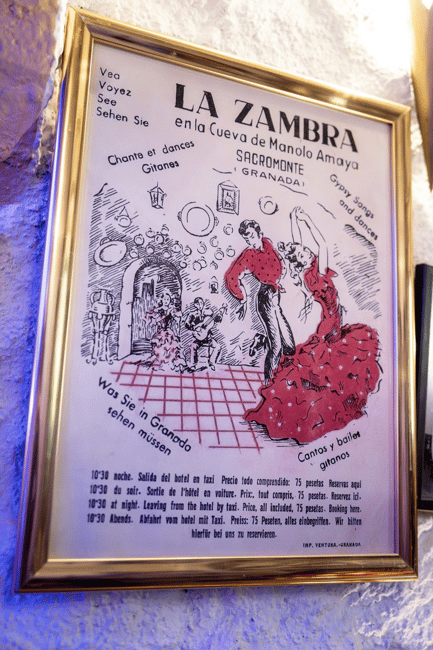 Vea
Voyez
See
Sehen Sie
LA ZAMBRA
en la Cueva de Manolo Amaya
SACROMONTE
(GRANADA)
Chants et dances
Gitanes
Gypsy Songs
and dances
Was Sie in Granada
sehen müssen
Cantos y bailes
gitanos
10'30 noche. Salida del hotel en taxi Precio todo comprendido: 75 pesetas Reserves aquí
10'30 du soir. Sortie de l'hôtel en voiture. Prix, tout compris, 75 pesetas. Reservez ici.
10'30 at night. Leaving from the hotel by taxi. Price, all included, 75 pesetas. Booking here.
10'30 Abends. Abfahrt vom hotel mit Taxi. Preiss: 75 Peseten, alles einbegriffen. Wir bitten
hierfür bei uns zu reservieren.
IMP. VENTURA.-GRANADA